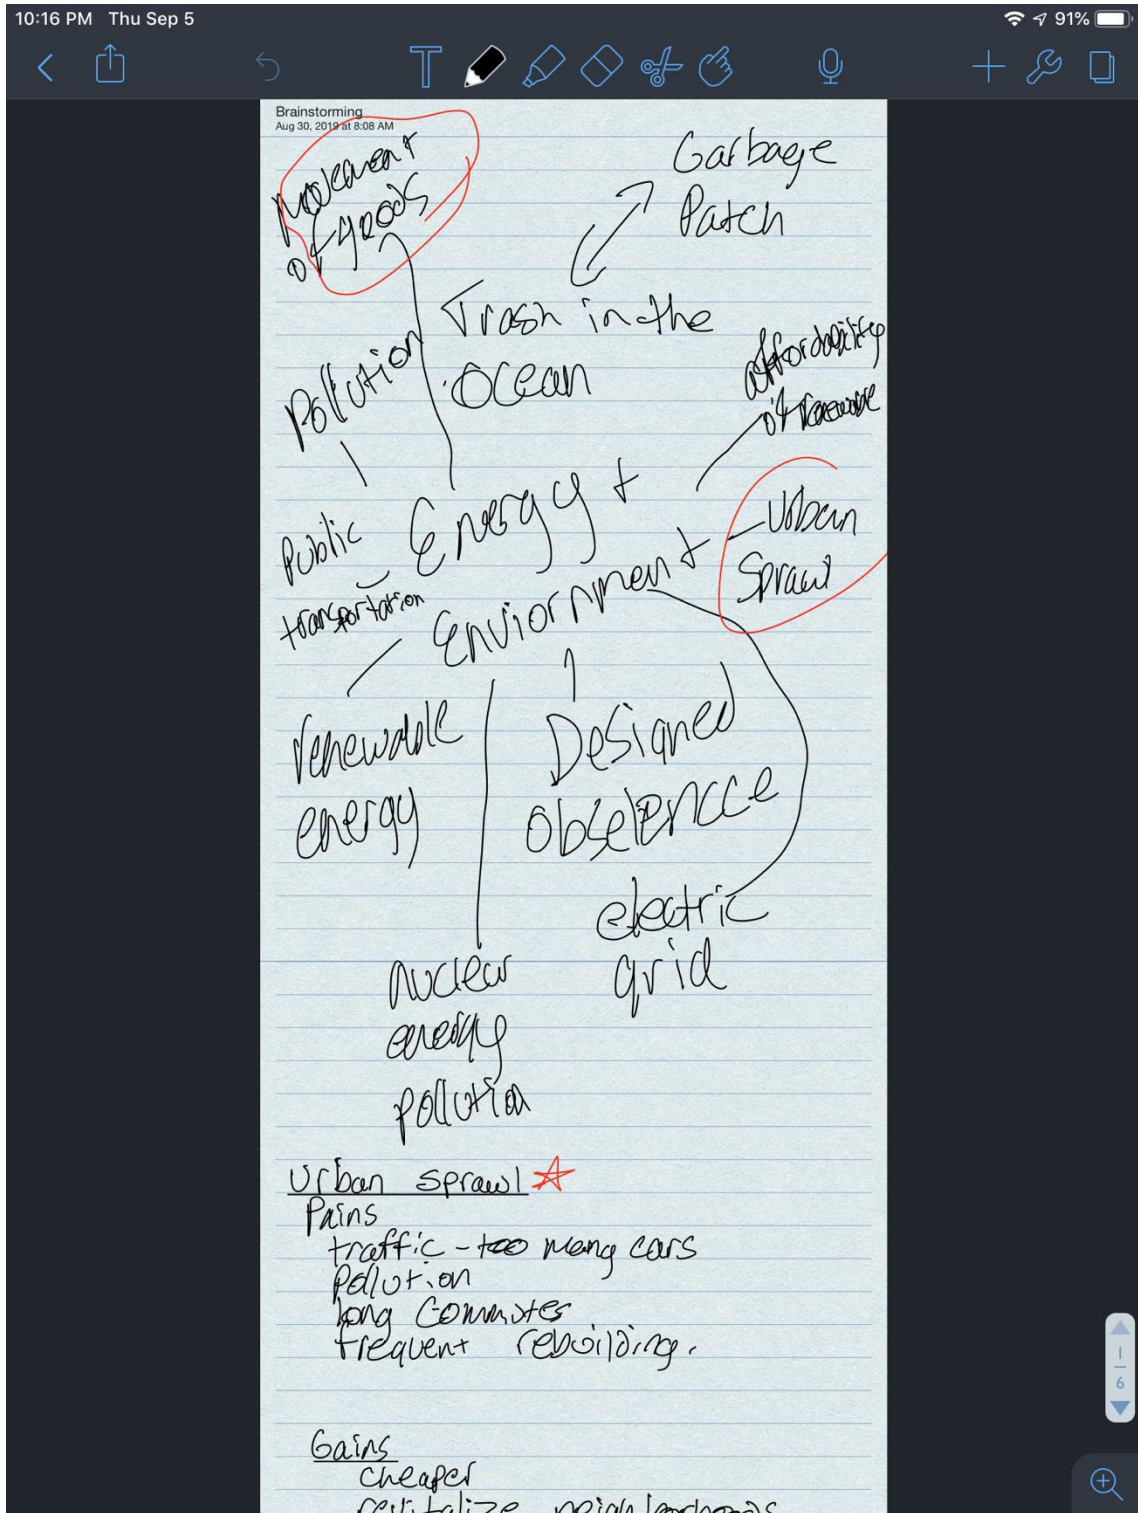 10:16 PM Thu Sep 5
91%
Brainstorming
Aug 30, 2019 at 8:08 AM
Movement
of goods
Garbage
Patch
Trash in the
Ocean
Pollution
affordability
of renewable
Energy +
Enviornment
Public
transportation
Urban
Sprawl
renewable
energy
Designed
obselencce
electric
grid
nuclear
energy
pollution
Urban Sprawl
Pains
traffic - too many cars
Pollution
long Commutes
frequent rebuilding.
Gains
cheaper
revitalize neighborhoods
1
6